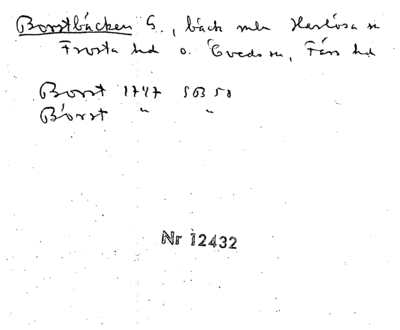 Borstbäcken S., bäck mln Harlösa sn
Frosta hd o. Övedssn, Färs hd
Borst 1747 5B 50
Borst " "
Nr 12432